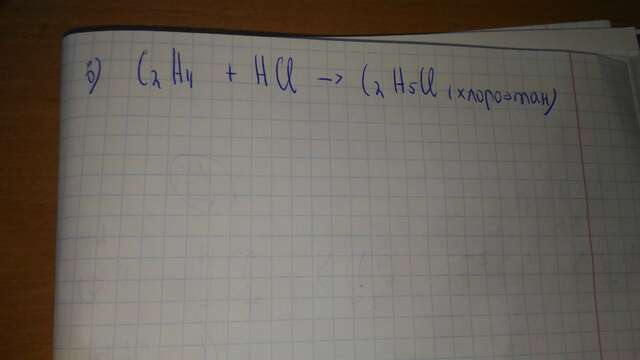 б) C2H4 + HCl → C2H5Cl (хлороэтан)